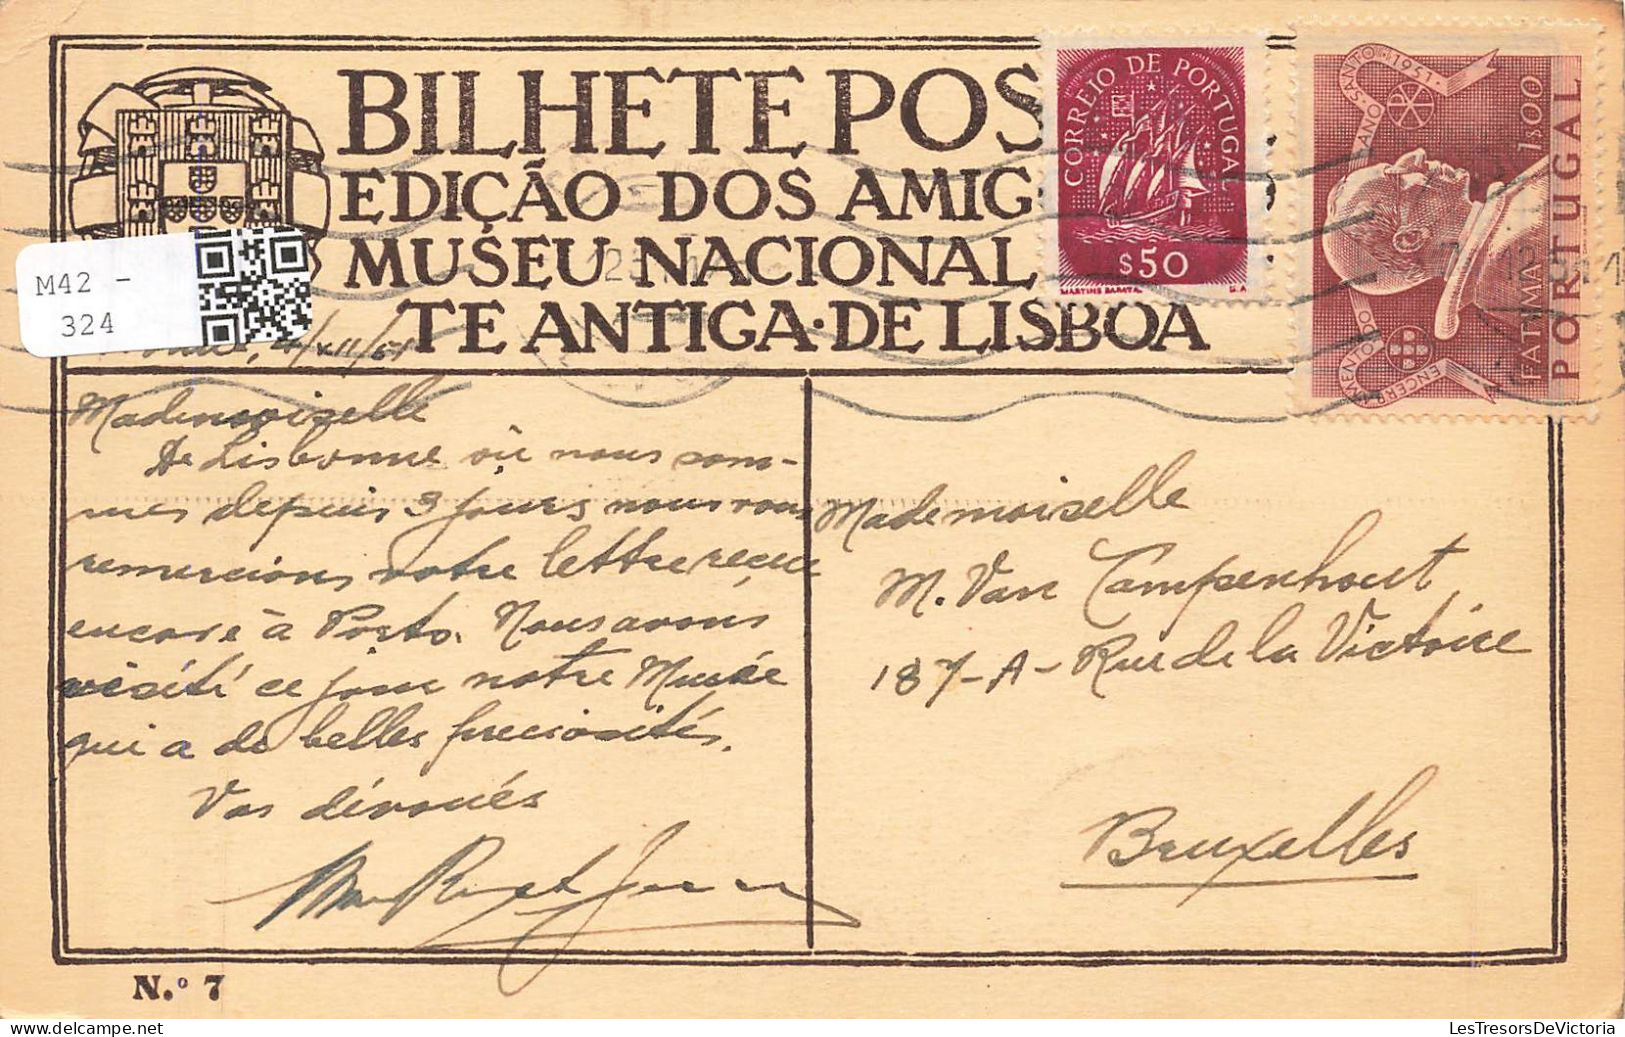 BILHETE POS
EDIÇÃO DOS AMIG
MUSEU NACIONAL
TE ANTIGA·DE LISBOA
CORREIO DE PORTUGAL
$50
MARTINS BARATA
ENCERRAMENTO DO ANO·SANTO·1951·
FATIMA
1$00
PORTUGAL
M42 -
324
4/XII/51
Mademoiselle
De Lisbonne où nous som-
mes depuis 3 jours nous vous
remercions votre lettre reçue
encore à Porto. Nous avons
visité ce jour notre Musée
qui a de belles preciosités.
Vos dévoués
Mademoiselle
M. Van Campenhout
187-A-Rue de la Victoire
Bruxelles
N.º 7
LesTresorsDeVictoria